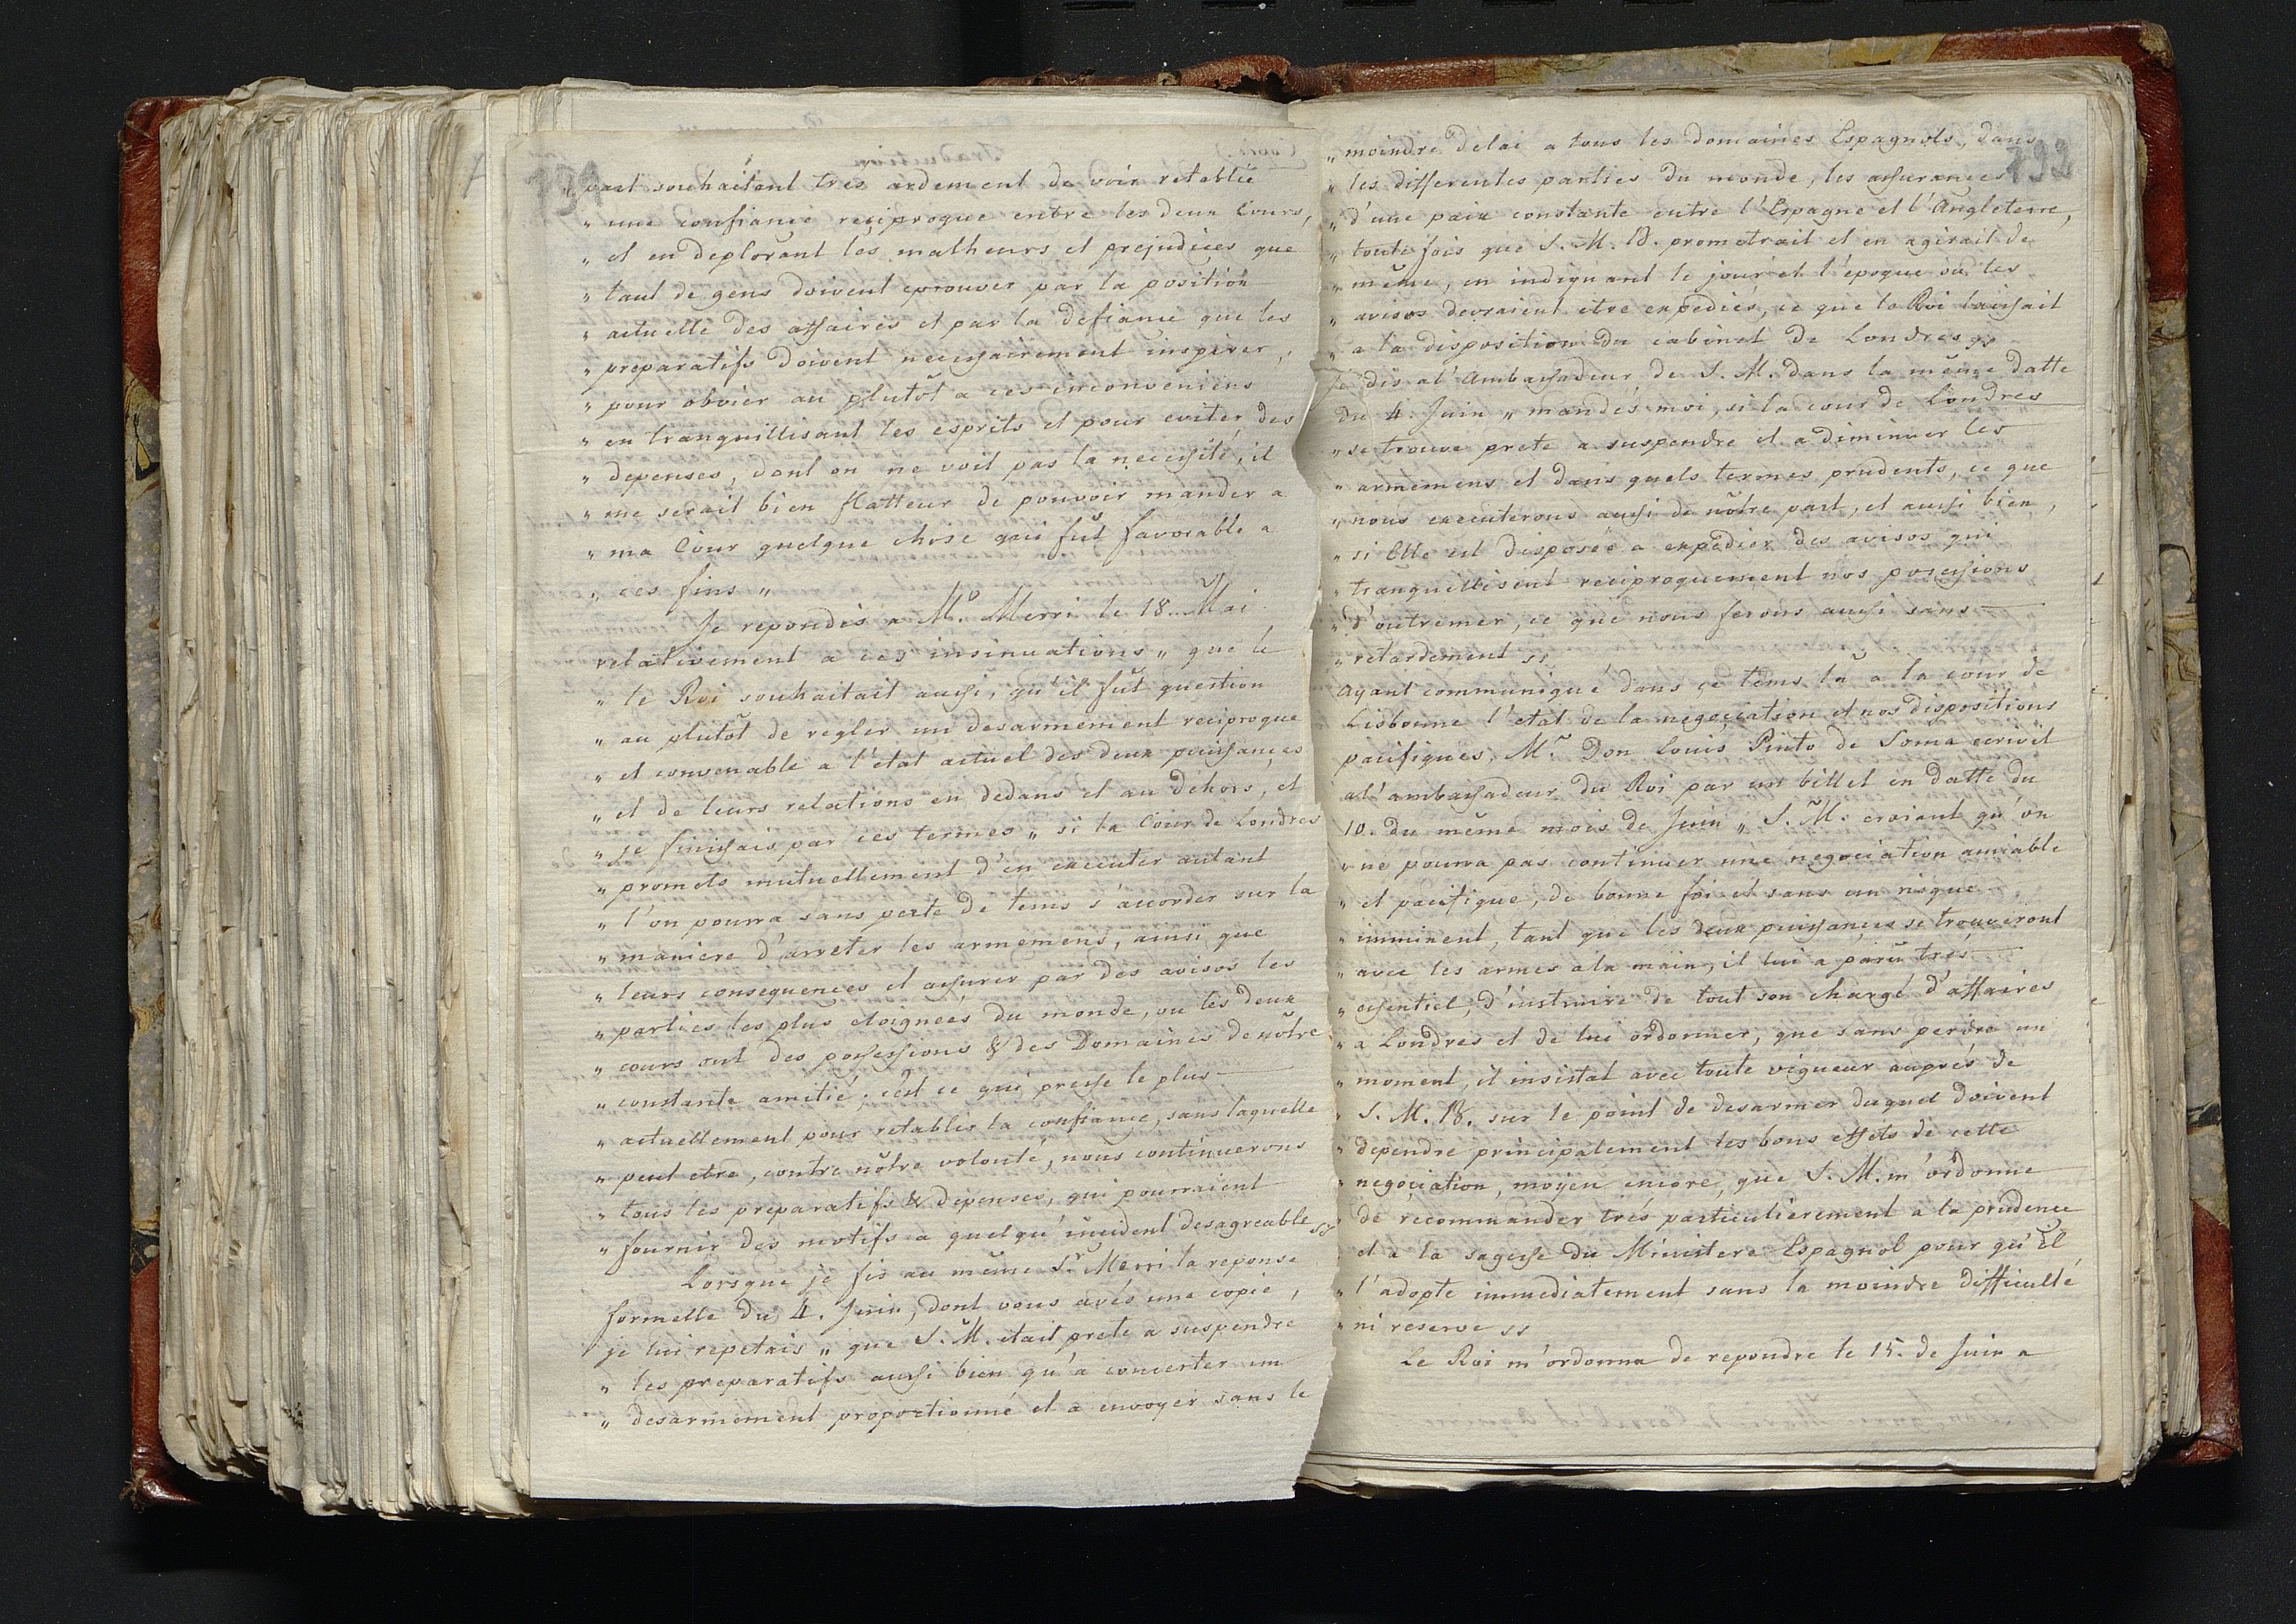 191
„ part souhaitant tres ardement de voir retablie
„ une confiance reciproque entre les deux Cours,
„ et en deplorant les malheurs et prejudices que
„ tant de gens doivent eprouver par la position
„ actuelle des affaires et par la defiance que les
„ preparatifs doivent necessairement inspirer,
„ pour obvier au plutôt a ces inconveniens
„ en tranquillisant les esprits et pour eviter des
„ depenses, dont on ne voit pas la necessité, il
„ me serait bien flatteur de pouvoir mander a
„ ma Cour quelque chose qui fut favorable a
„ ces fins „
Je repondis a Mr. Merri le 18. Mai
relativement a ces insinuations „ que le
„ le Roi souhaitait aussi, qu'il fut question
„ au plutôt de regler un desarmement reciproque
„ et convenable a l'état actuel des deux puissances
„ et de leurs relations en dedans et au dehors, et
„ je finissais par ces termes „ si la Cour de Londres
„ promets mutuellement d'en executer autant
„ l'on pourra sans perte de tems s'accorder sur la
„ maniere d'arreter les armemens, ainsi que
„ leurs consequences et assurer par des avisos les
„ parties les plus eloignées du monde, ou les deux
„ cours ont des possessions & des Domaines de nôtre
„ constante amitié; c'est ce qui presse le plus
„ actuellement pour retablir la confiance, sans laquelle
„ peut etre, contre nôtre volonté, nous continuerons
„ tous les preparatifs & depenses, qui pourraient
„ fournir des motifs a quelqu'incident desagreable „
Lorsque je fis au même Sr. Merri la reponse
formelle du 4. Juin, dont vous avés une copie,
je lui repetais „ que S. M. etait prete a suspendre
„ les preparatifs aussi bien qu'a concerter un
„ desarmement proportionné et a envoyer sans le
192
„ moindre delai a tous les domaines Espagnols, dans
„ les differentes parties du monde, les assurances
„ d'une paix constante entre l'Espagne et l'Angleterre,
„ toute fois que S. M. B. prometrait et en agirait de
„ même, en indiquant le jour et l'époque où les
„ avisos devraient etre expediés, ce que le Roi laissait
„ a la disposition du cabinet de Londres „
Je dis a l'Ambassadeur de S. M. dans la même datte
du 4 Juin „ mandés moi, si la cour de Londres
„ se trouve prete a suspendre et a diminuer les
„ armemens et dans quels termes prudents, ce que
„ nous executerons aussi de nôtre part, et aussi bien,
„ si Elle est disposée a expedier des avisos qui
„ tranquillisent reciproquement nos possessions
„ d'outremer, ce que nous ferons aussi sans
„ retardement „
Ayant communiqué dans ce tems là a la cour de
Lisbonne l'etat de la negociation et nos dispositions
pacifiques, Mr. Don Louis Pinto de Soma ecrivit
a l'ambassadeur du Roi par un billet en datte du
10. du même mois de Juin „ S. M. croiant qu'on
„ ne pourra pas continuer une negociation amiable
„ et pacifique, de bonne foi et sans un risque
„ imminent, tant que les deux puissances se trouveront
„ avec les armes a la main, il lui a paru tres
„ essentiel, d'instruire de tout son chargé d'affaires
„ a Londres et de lui ordonner, que sans perdre un
„ moment, il insistat avec toute vigueur auprés de
„ S. M. B. sur le point de desarmer duquel doivent
„ dependre principalement les bons effets de cette
„ negociation, moyen encore, que S. M. m'ordonne
„ de recommander trés particulierement a la prudence
„ et a la sagesse du Ministere Espagnol pour qu'il
„ l'adopte immediatement sans la moindre difficulté
„ ni reserve „
Le Roi m'ordonna de repondre le 15. de Juin a